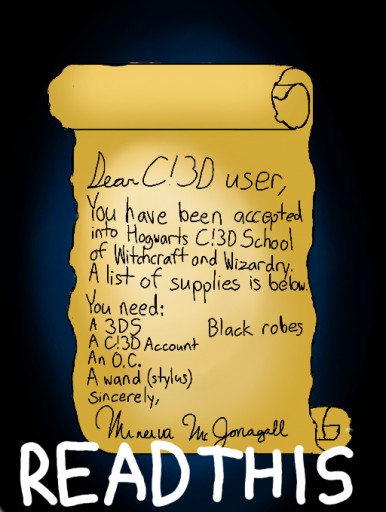 Dear C!3D user,
You have been accepted
into Hogwarts C!3D School
of Witchcraft and Wizardry.
A list of supplies is below.
You need:
A 3DS Black robes
A C!3D Account
An O.C.
A wand (stylus)
Sincerely,
Minerva McGonagall
READ THIS